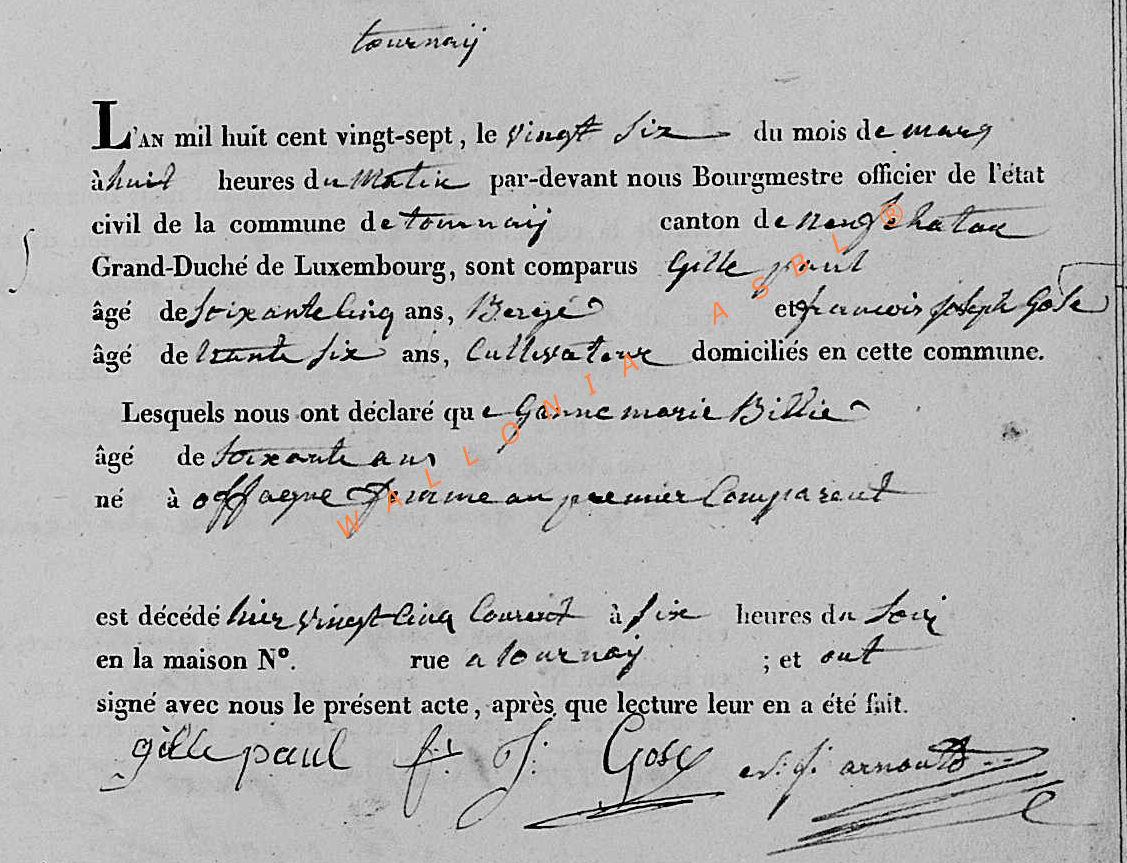 tournay
L'AN mil huit cent vingt-sept, le vingt six du mois de mars
à huit heures du Matin par-devant nous Bourgmestre officier de l'état
civil de la commune de tournay canton de neufchatau
Grand-Duché de Luxembourg, sont comparus Gille paul
âgé de soixante Cinq ans, Bergé et francois joseph Gose
âgé de trante six ans, Cultivateur domiciliés en cette commune.
Lesquels nous ont déclaré que Ganne marie Billie
âgé de soixante ans
né à offagne femme au premier Comparant
est décédé hier vingt Cinq Courent à six heures du Soir
en la maison N°. rue a tournay ; et ont
signé avec nous le présent acte, après que lecture leur en a été fait.
gille paul f. J: Gose arnould
WALLONIA ASBL ®